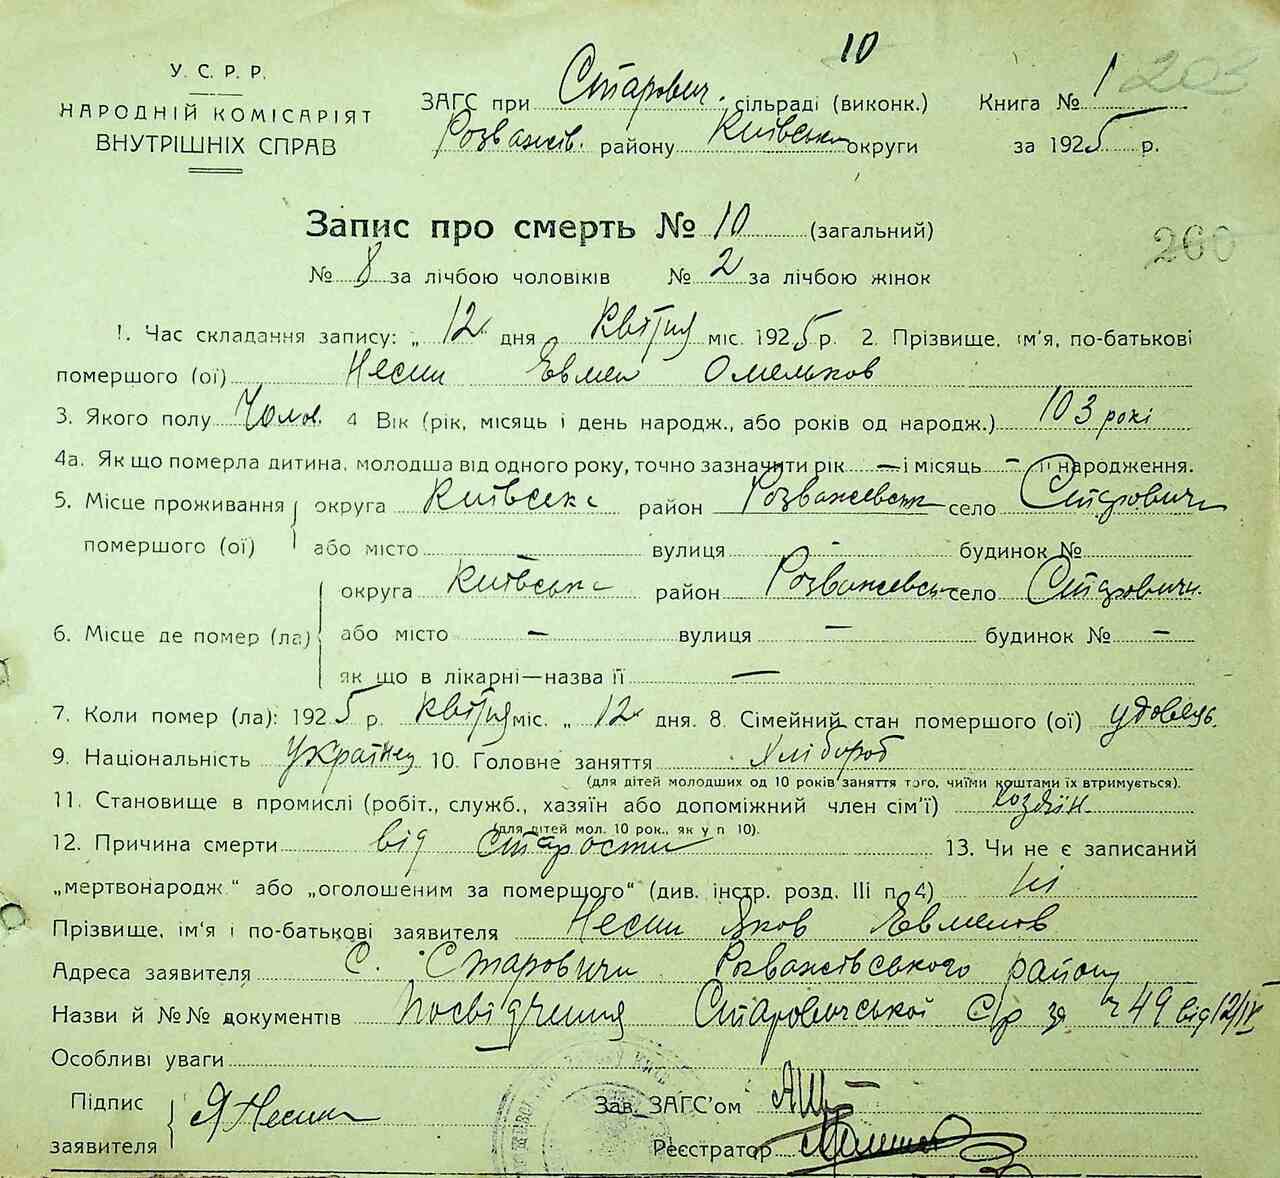 10
У. С. Р. Р.
НАРОДНІЙ КОМІСАРІЯТ
ВНУТРІШНІХ СПРАВ
ЗАГС при Старович. сільраді (виконк.) Книга № 1 203
Розважів. району Київськ округи за 1925 р.
Запис про смерть № 10 (загальний)
260
№ 8 за лічбою чоловіків № 2 за лічбою жінок
1. Час складання запису: „ 12 дня Квітня міс. 1925 р. 2. Прізвище, ім'я, по-батькові
помершого (ої) Несин Евмен Омельков
3. Якого полу Чолов. 4 Вік (рік, місяць і день народж., або років од народж.) 103 рокі
4а. Як що померла дитина, молодша від одного року, точно зазначити рік — і місяць — її народження.
5. Місце проживання округа Київска район Розважевськ село Старовичи
помершого (ої) або місто вулиця - будинок №
округа Київська район Розважевськ село Старовичи.
6. Місце де помер (ла) або місто — вулиця — будинок № —
як що в лікарні—назва її —
7. Коли помер (ла): 1925 р. Квітня міс. „ 12 дня. 8. Сімейний стан помершого (ої) удовець.
9. Національність Українец 10. Головне заняття Хлібороб
(для дітей молодших од 10 років заняття того, чиїми коштами їх втримується).
11. Становище в промислі (робіт., служб., хазяїн або допоміжний член сім'ї) хозяїн
(для дітей мол. 10 рок., як у п 10).
12. Причина смерти від Старости 13. Чи не є записаний
„мертвонародж." або „оголошеним за помершого" (див. інстр. розд. III п. 4) ні
Прізвище, ім'я і по-батькові заявителя Несин Яков Евменов
Адреса заявителя С. Старовичи Розважівського району
Назви й №№ документів Посвідчення Старовичської С/р за ч 49 від 12/IV
Особливі уваги
Підпис
заявителя Я Несин
Зав. ЗАГС'ом
Реєстратор